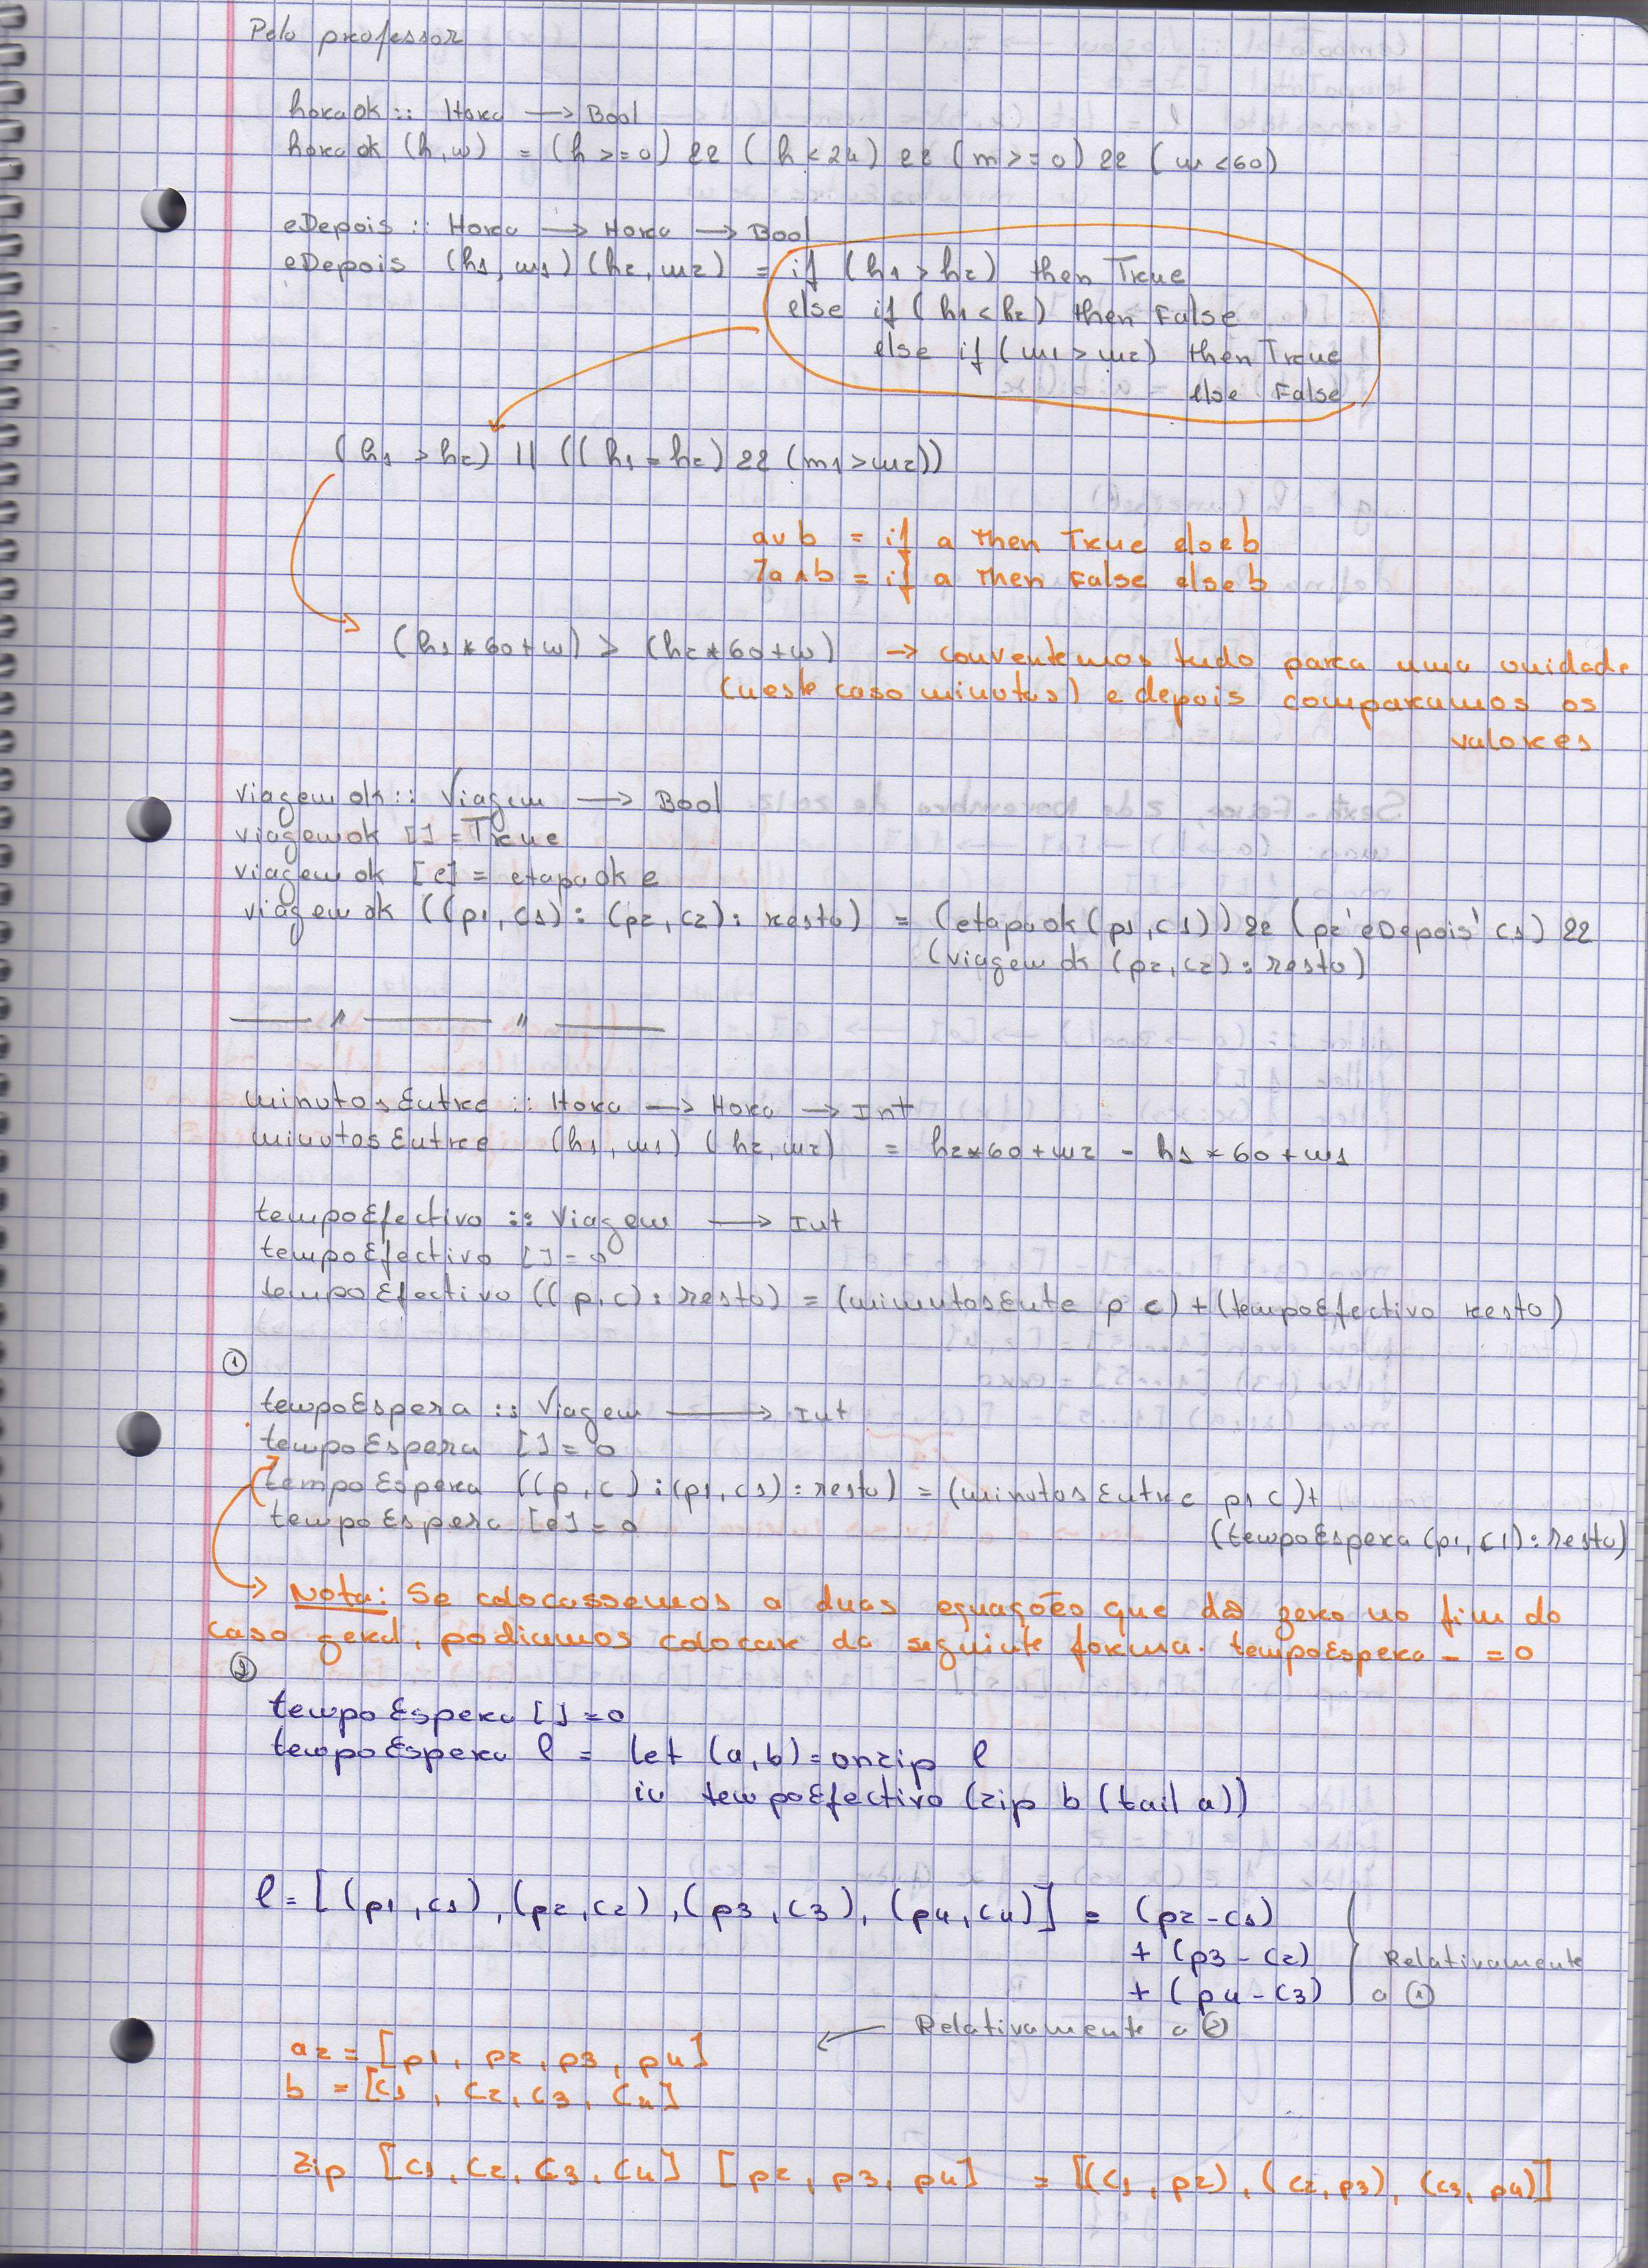 Pelo professor
horaok :: Hora —> Bool
horaok (h,m) = (h >= 0) && (h < 24) && (m >= 0) && (m < 60)
eDepois :: Hora —> Hora —> Bool
eDepois (h1, m1) (h2, m2) = if (h1 > h2) then True
else if (h1 < h2) then False
else if (m1 > m2) then True
else False
(h1 > h2) || ((h1 = h2) && (m1 > m2))
a ∨ b = if a then True else b
¬a ∧ b = if a then False else b
(h1 * 60 + m) > (h2 * 60 + m) → conventemos tudo para uma unidade
(neste caso minutos) e depois comparamos os
valores
viagemok :: Viagem —> Bool
viagemok [] = True
viagemok [e] = etapaok e
viagemok ((p1, c1) : (p2, c2) : resto) = (etapaok (p1, c1)) && (p2 'eDepois' c1) &&
(viagemok (p2, c2) : resto)
—— " —— " ——
minutosEntre :: Hora —> Hora —> Int
minutosEntre (h1, m1) (h2, m2) = h2*60+m2 - h1*60+m1
tempoEfectivo :: Viagem —> Int
tempoEfectivo [] = 0
tempoEfectivo ((p,c) : resto) = (minutosEnte p c) + (tempoEfectivo resto)
①
tempoEspera :: Viagem —> Int
tempoEspera [] = 0
tempoEspera ((p,c) : (p1, c1) : resto) = (minutosEntre p1 c) +
(tempoEspera (p1, c1) : resto)
tempoEspera [e] = 0
→ Nota: Se colocassemos a duas equações que dão zero no fim do
caso geral, podiamos colocar da seguinte forma. tempoEspera _ = 0
②
tempoEspera [] = 0
tempoEspera l = let (a,b) = unzip l
in tempoEfectivo (zip b (tail a))
l = [(p1, c1), (p2, c2), (p3, c3), (p4, c4)] = (p2 - c1)
+ (p3 - c2)
+ (p4 - c3)
Relativamente
a ①
Relativamente a ②
a2 = [p1, p2, p3, p4]
b = [c1, c2, c3, c4]
zip [c1, c2, c3, c4] [p2, p3, p4] = [(c1, p2), (c2, p3), (c3, p4)]